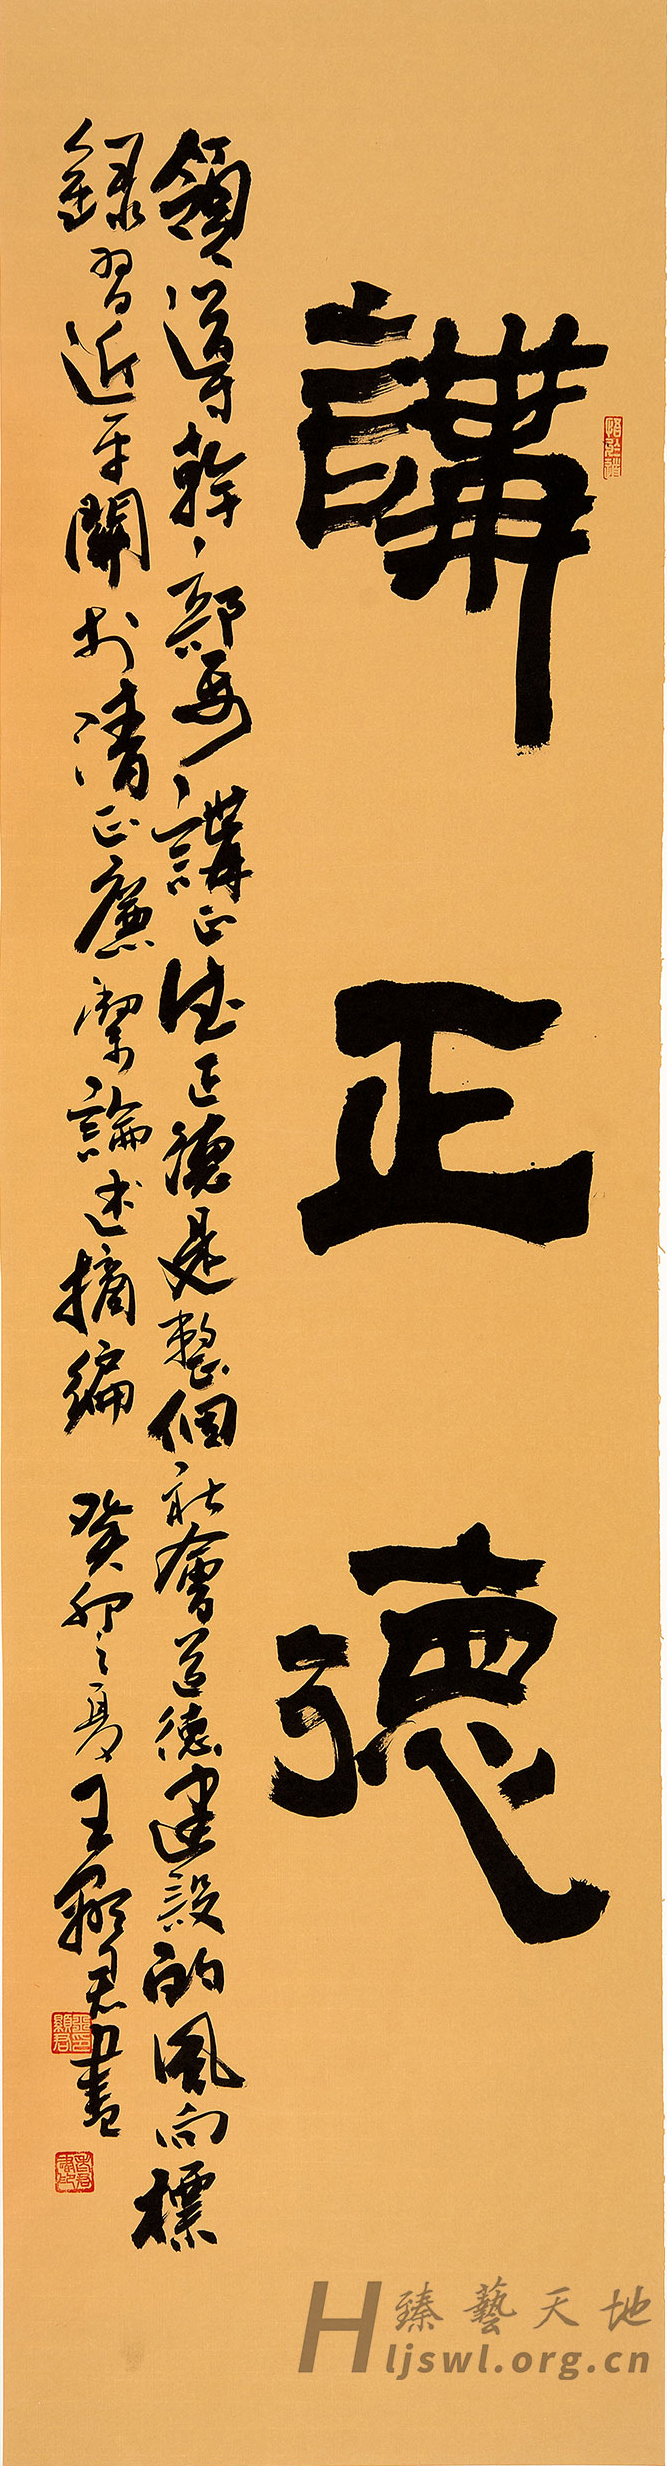 講正德
領導幹部要講正德正德是整個社會道德建設的風向標
錄習近平關扵清正廉潔論述摘編 癸卯之夏王顯君書
臻藝天地
Hljswl.org.cn